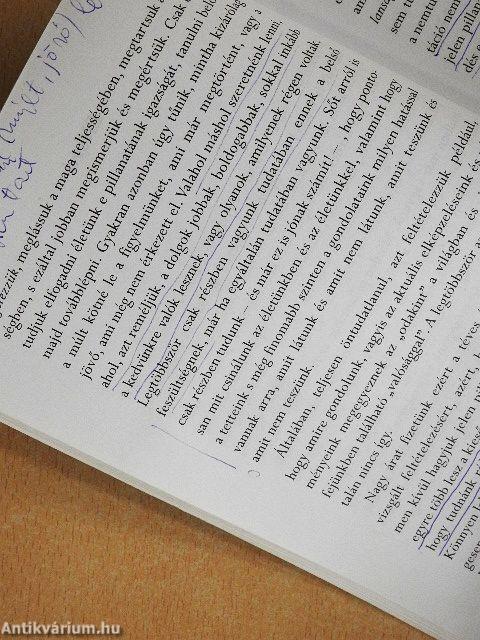 (múlt, jövő) le
tart
vezzük, meglássuk a maga teljességében, megtartsuk
ségeen, s ezáltal jobban megismerjük és megértsük. Csak
tudjuk elfogadni életünk e pillanatának igazságát, tanulni belő
majd továbblépni. Gyakran azonban úgy tűnik, mintha kizárólag
a múlt kötné le a figyelmünket, ami már megtörtént, vagy a
jövő, ami még nem érkezett el. Valahol máshol szeretnénk lenni,
ahol, azt reméljük, a dolgok jobbak, boldogabbak, sokkal inkább
a kedvünkre valók lesznek, vagy olyanok, amilyenek régen voltak
Legtöbbször csak részben vagyunk tudatában ennek a belső
feszültségnek, már ha egyáltalán tudatában vagyunk. Sőt arról is
csak részben tudunk – és már ez is jónak számít! –, hogy ponto-
san mit csinálunk az életünkben és az életünkkel, valamint hogy
a tetteink s még finomabb szinten a gondolataink milyen hatással
vannak arra, amit látunk és amit nem látunk, amit teszünk és
amit nem teszünk.
Általában, teljesen öntudatlanul, azt feltételezzük például,
hogy amire gondolunk, vagyis az aktuális elképzeléseink és
ményeink megegyeznek az „odakint” a világban és
fejünkben található „valósággal”. A legtöbbször
talán nincs így.
Nagy árat fizetünk ezért a téves,
vizsgált feltételezésért, azért,
men kívül hagyjuk jelen
egyre több lesz a
hogy tudnánk
Könnyen
gesen
sem t
a nemtu
táció nem
jelen pilla
dés e
Antikvárium.hu